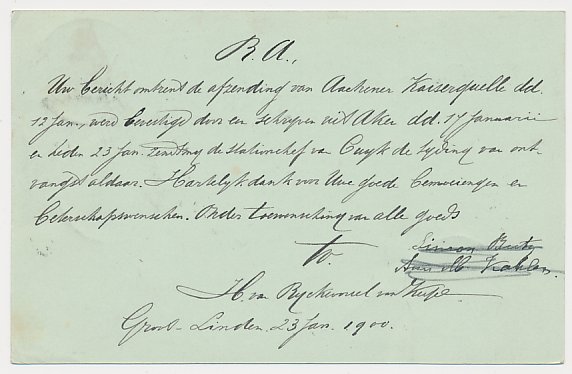 R.A.,
Uw bericht omtrent de afzending van Aachener Kaiserquelle dd.
12 Jan., werd bevestigd door een schrijven uit Aken dd. 17 Januarij
en heden 23 Jan. zendt mij de Stationchef van Cuyk de tijding van ont-
vangst aldaar. Hartelijk dank voor Uwe goede bemoeiingen en
beterschapswenschen. Onder toewensching van alle goeds
Simon
tv.
H van Ryckevorsel van
Groot-Linden 23 Jan. 1900.